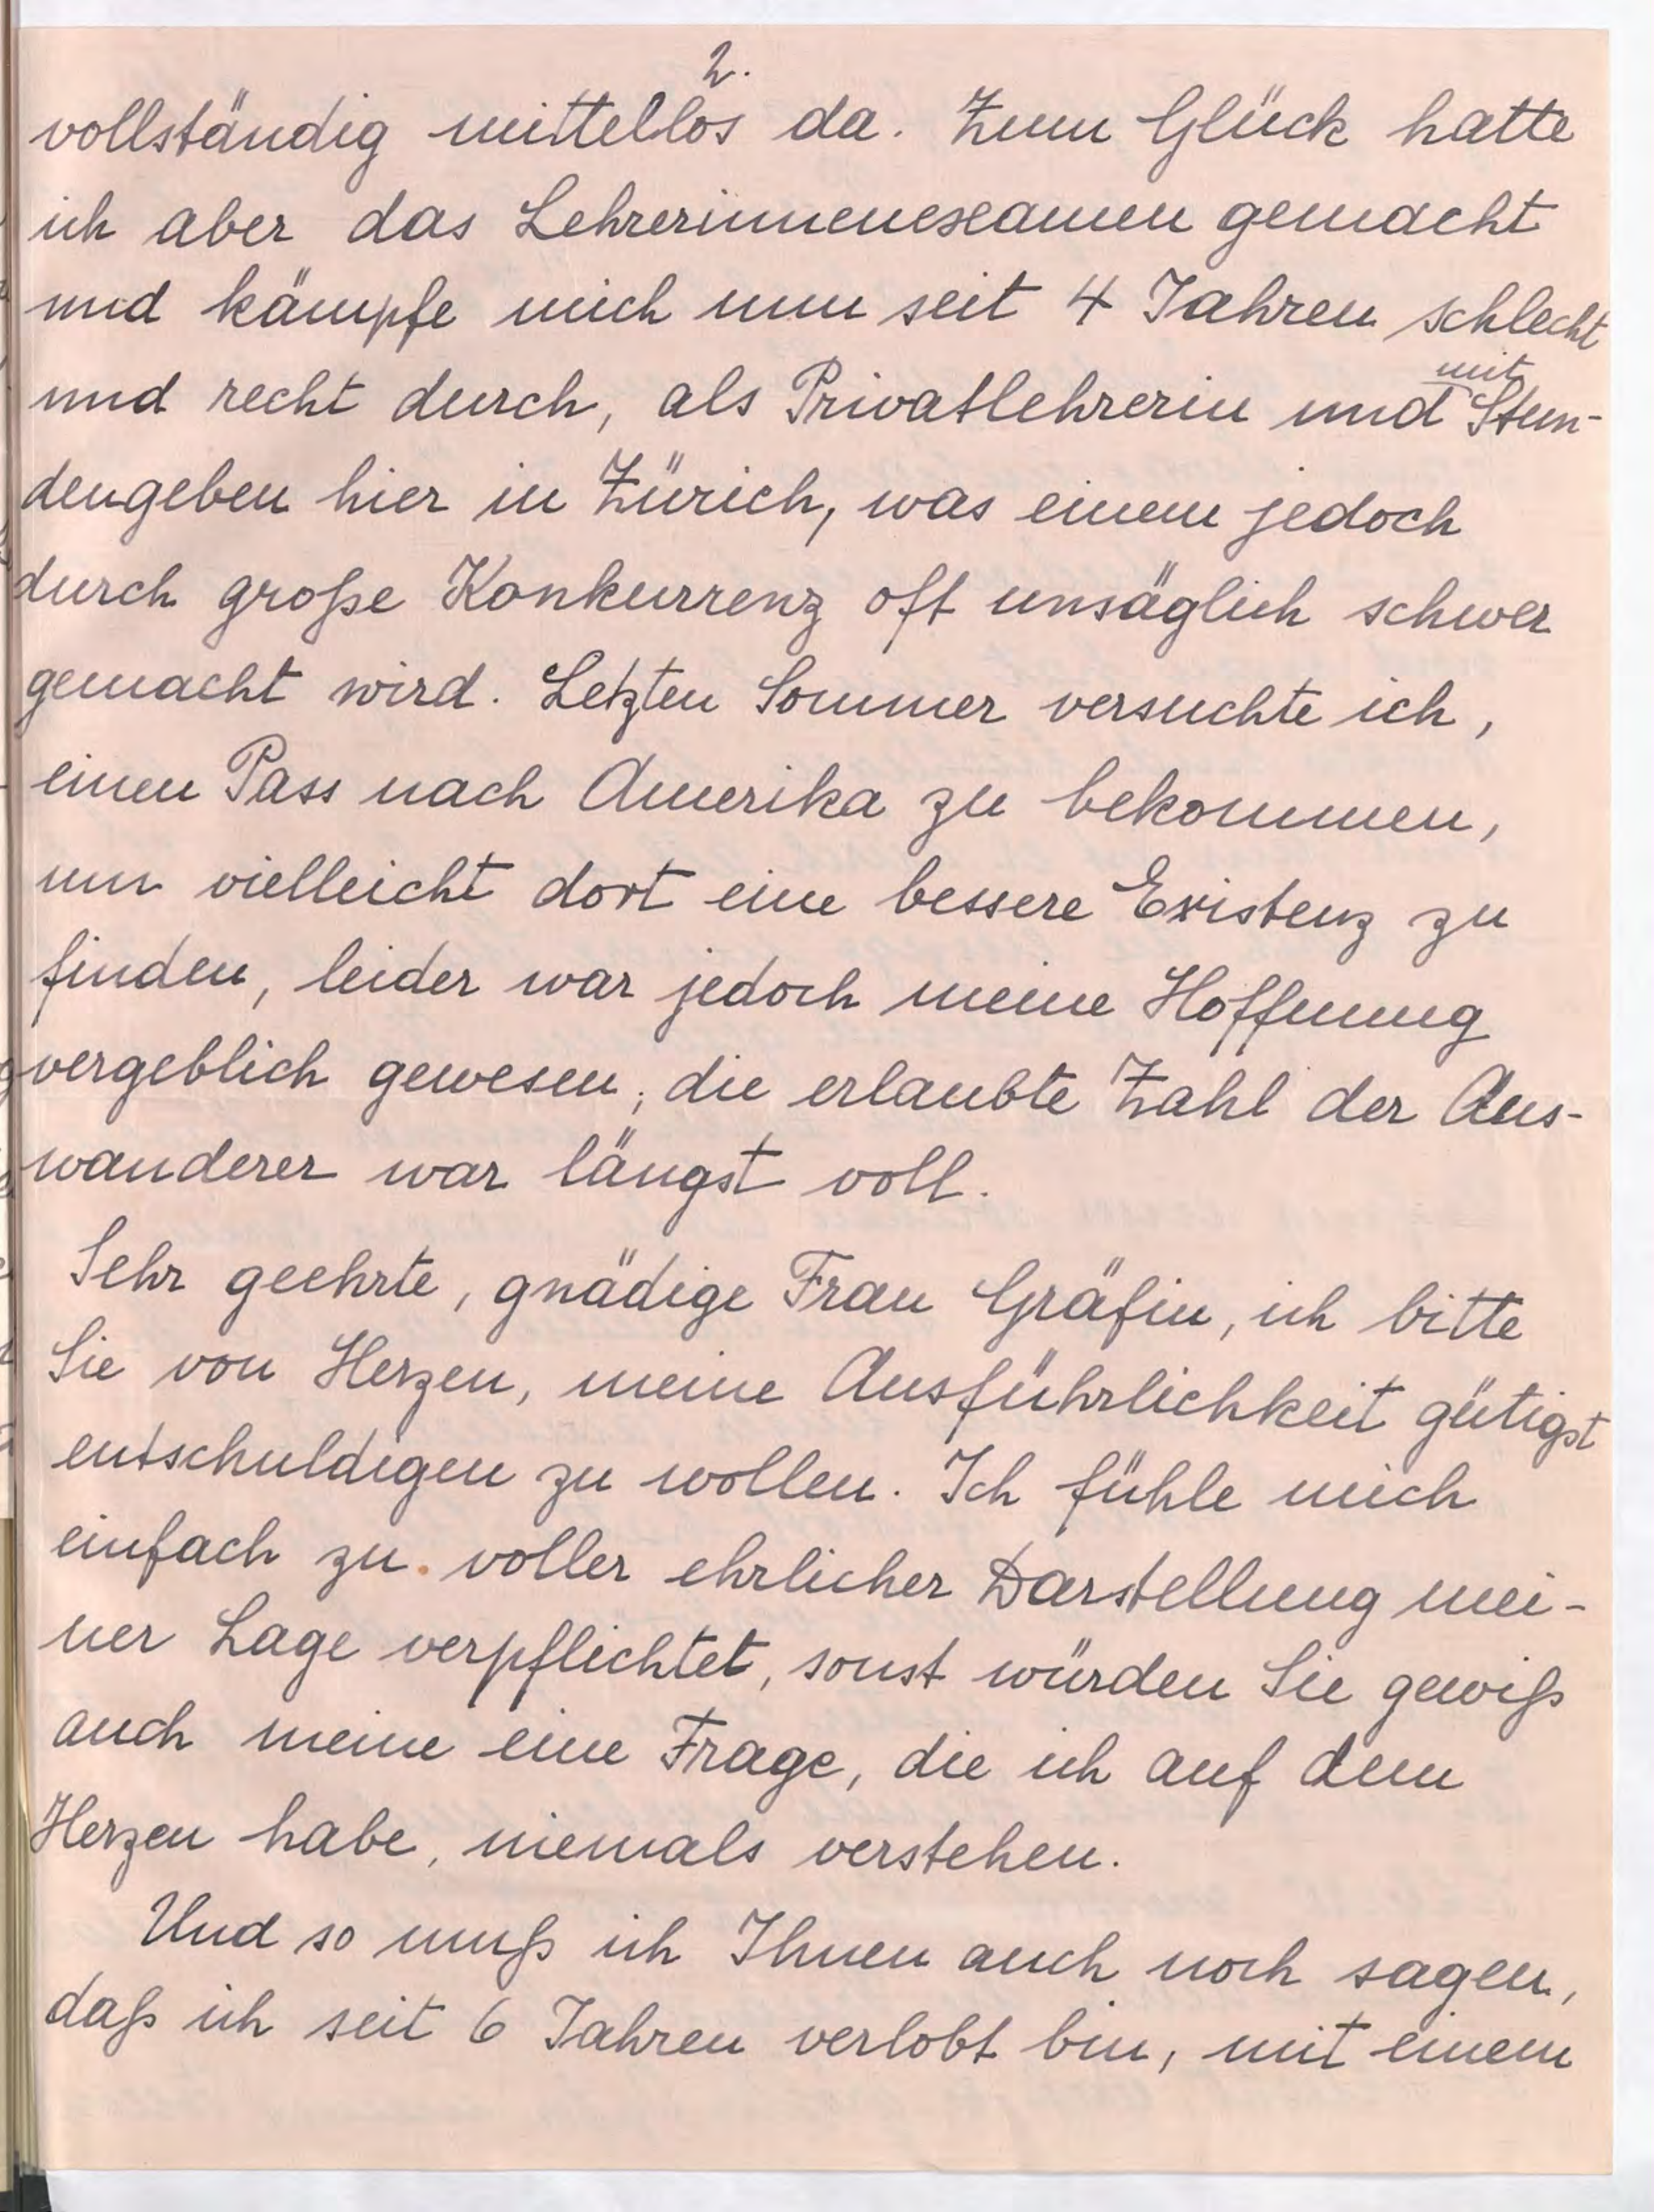 2.
vollständig mittellos da. Zum Glück hatte
ich aber das Lehrerinnenexamen gemacht
und kämpfe mich nun seit 4 Jahren schlecht
und recht durch, als Privatlehrerin und mit Stun-
dengeben hier in Zürich, was einem jedoch
durch große Konkurrenz oft unsäglich schwer
gemacht wird. Letzten Sommer versuchte ich,
einen Pass nach Amerika zu bekommen,
um vielleicht dort eine bessere Existenz zu
finden, leider war jedoch meine Hoffnung
vergeblich gewesen; die erlaubte Zahl der Aus-
wanderer war längst voll.
Sehr geehrte, gnädige Frau Gräfin, ich bitte
Sie von Herzen, meine Ausführlichkeit gütigst
entschuldigen zu wollen. Ich fühle mich
einfach zu voller ehrlicher Darstellung mei-
ner Lage verpflichtet, sonst würden Sie gewiß
auch meine eine Frage, die ich auf dem
Herzen habe, niemals verstehen.
Und so muß ich Ihnen auch noch sagen,
daß ich seit 6 Jahren verlobt bin, mit einem